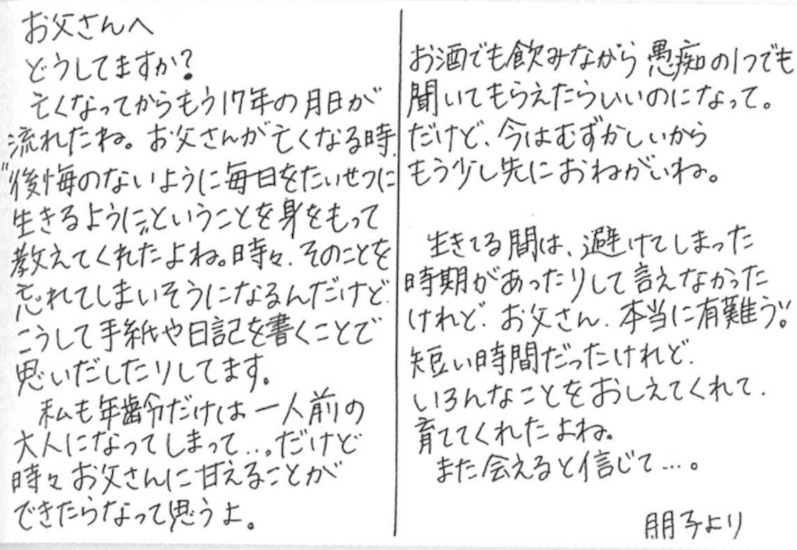 お父さんへ
どうしてますか?
亡くなってからもう17年の月日が
流れたね。お父さんが亡くなる時、
"後悔のないように毎日をたいせつに
生きるように"ということを身をもって
教えてくれたよね。時々、そのことを
忘れてしまいそうになるんだけど、
こうして手紙や日記を書くことで
思いだしたりしてます。
私も年齢だけは一人前の
大人になってしまって…。だけど
時々お父さんに甘えることが
できたらなって思うよ。
お酒でも飲みながら愚痴の1つでも
聞いてもらえたらいいのになって。
だけど、今はむずかしいから
もう少し先におねがいね。
生きてる間は、避けてしまった
時期があったりして言えなかった
けれど、お父さん、本当に有難う。
短い時間だったけれど、
いろんなことをおしえてくれて、
育ててくれたよね。
また会えると信じて…。
朋子より